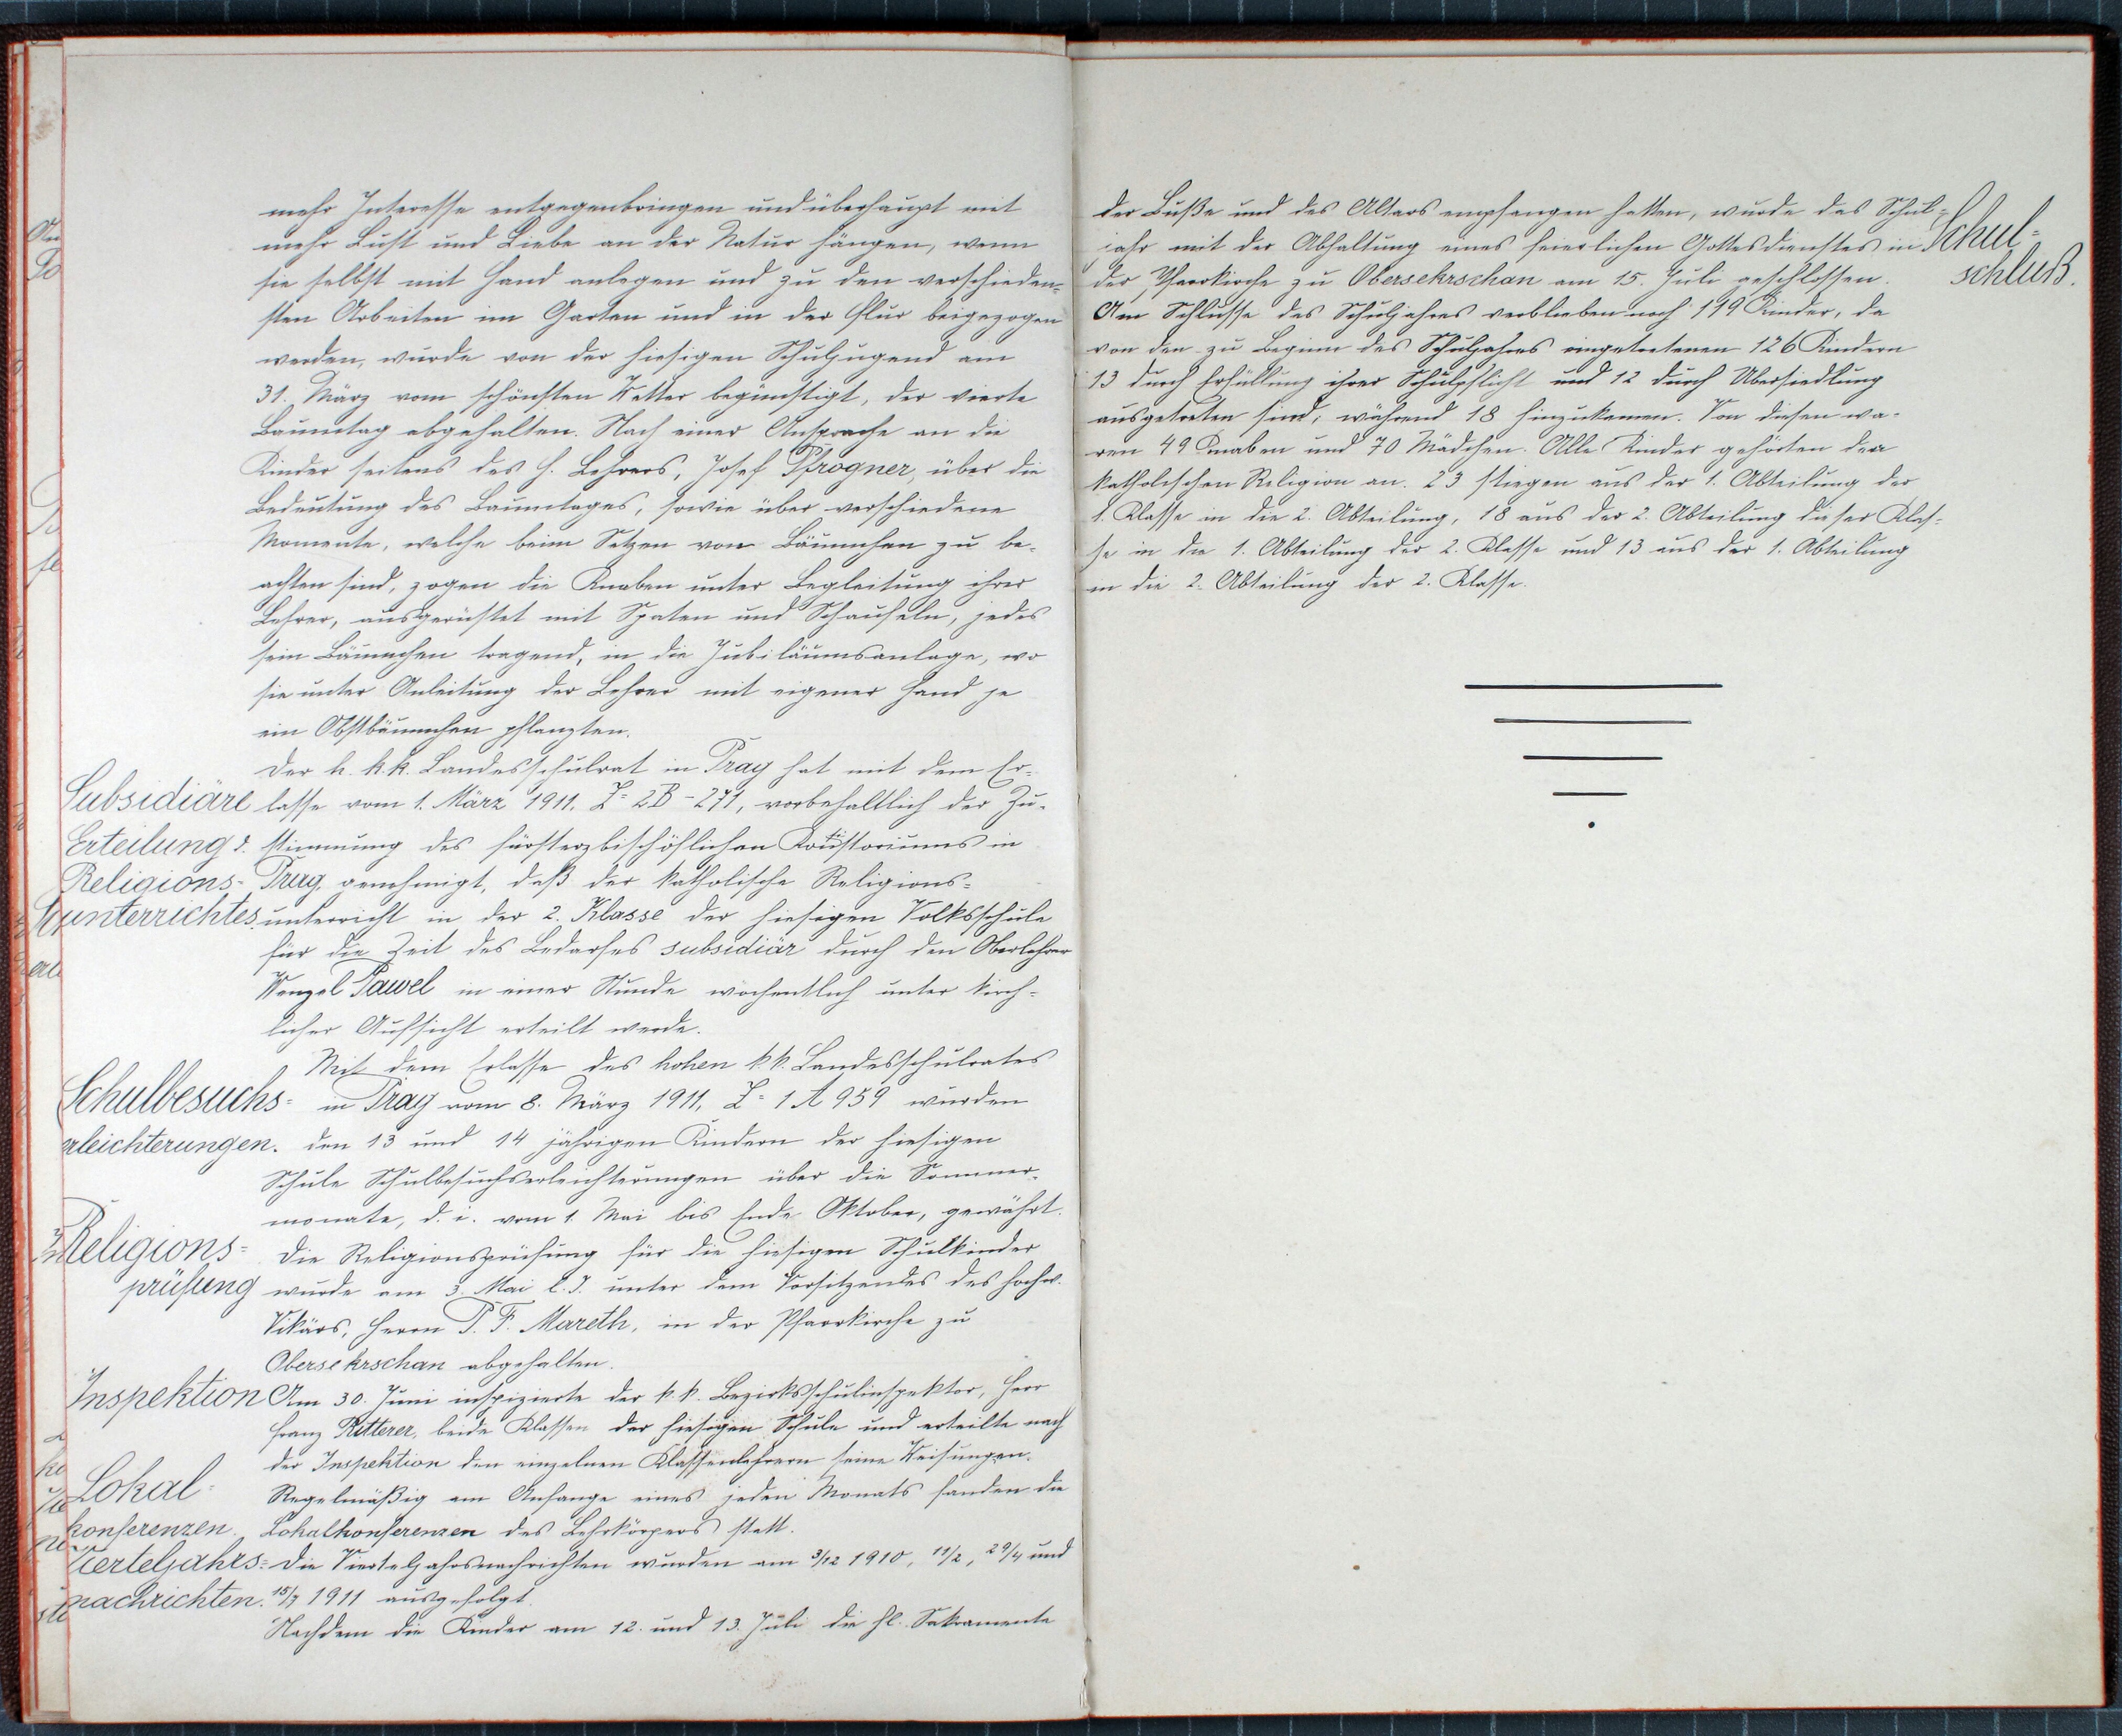 mehr Interesse entgegenbringen und überhaupt mit
mehr Lust und Liebe an der Natur hängen, wenn
sie selbst mit Hand anlegen und zu den verschieden-
sten Arbeiten im Garten und in der Flur beigezogen
werden, wurde von der hiesigen Schuljugend am
31. März vom schönsten Wetter begünstigt, der vierte
Baumtag abgehalten. Nach einer Ansprache an die
Kinder seitens des H. Lehrers, Josef Pfrogner, über die
Bedeutung des Baumtages, sowie über verschiedene
Momente, welche beim Setzen von Bäumchen zu be-
achten sind, zogen die Knaben unter Begleitung ihrer
Lehrer, ausgerüstet mit Spaten und Schaufeln, jedes
sein Bäumchen tragend, in die Jubiläumsanlage, wo
sie unter Anleitung der Lehrer mit eigener Hand je
ein Obstbäumchen pflanzten.
Der h. k. k. Landesschulrat in Prag hat mit dem Er-
Subsidiäre lasse vom 1. März 1911, Z= 2B-271, vorbehaltlich der Zu-
Erteilung d. stimmung des fürsterzbischöflichen Konsistoriums in
Religions- Prag, genehmigt, daß der katholische Religions=
unterrichtes. unterricht in der 2. Klasse der hiesigen Volksschule
für die Zeit des Bedarfes subsidiär durch den Oberlehrer
Wenzel Pawel in einer Stunde wöchentlich unter kirch-
licher Aufsicht erteilt werde.
Mit dem Erlasse des hohen k. k. Landesschulrates
Schulbesuchs= in Prag vom 8. März 1911, Z= 1 A 959 wurden
erleichterungen. den 13 und 14 jährigen Kindern der hiesigen
Schule Schulbesuchserleichterungen über die Sommer-
monate, d. i. vom 1. Mai bis Ende Oktober, gewährt.
Religions= Die Religionsprüfung für die hiesigen Schulkinder
prüfung wurde am 3. Mai l. J. unter dem Vorsitzendes des hochw.
Vikärs, Herrn P. F. Mareth, in der Pfarrkirche zu
Obersekrschan abgehalten.
Inspektion Am 30. Juni inspizierte der k. k. Bezirksschulinspektor, Herr
Franz Ritterer, beide Klassen der hiesigen Schule und erteilte nach
der Inspektion den einzelnen Klassenlehrern seine Weisungen.
Lokal- Regelmäßig am Anfange eines jeden Monats fanden die
konferenzen. Lokalkonferenzen des Lehrkörpers statt.
Vierteljahrs= Die Vierteljahrsnachrichten wurden am 3/12 1910, 11/2, 29/4 und
nachrichten. 15/7 1911 ausgefolgt.
Nachdem die Kinder am 12. und 13. Juli die hl. Sakramente
der Buße und des Altars empfangen hatten, wurde das Schul=
jahr mit der Abhaltung eines feierlichen Gottesdienstes in Schul=
der Pfarrkirche zu Obersekrschan am 15. Juli geschlossen. schluß.
Am Schlusse des Schuljahres verblieben noch 119 Kinder, da
von den zu Beginn des Schuljahres eingetretenen 126 Kindern
13 durch Erfüllung ihrer Schulpflicht und 12 durch Übersiedlung
ausgetreten sind, während 18 hinzukamen. Von diesen wa-
ren 49 Knaben und 70 Mädchen. Alle Kinder gehörten der
katholischen Religion an. 23 stiegen aus der 1. Abteilung der
1. Klasse in die 2. Abteilung, 18 aus der 2. Abteilung dieser Klas-
se in die 1. Abteilung der 2. Klasse und 13 aus der 1. Abteilung
in die 2. Abteilung der 2. Klasse.